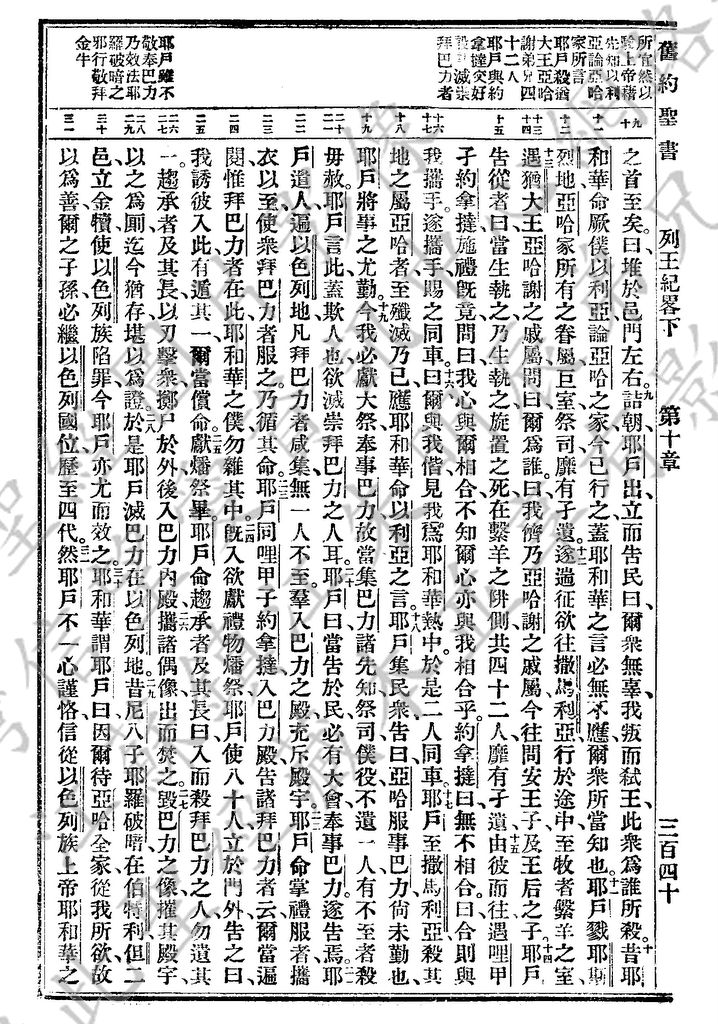 舊約聖書 列王紀畧下 第十章 三百四十
所宜然以
騐上帝藉
先知以利
亞論亞哈
家所言
耶戶殺猶
大王亞哈
謝弟兄四
十二人
耶戶與約
拿撻交好
滅崇
拜巴力者
耶戶雖不
敬奉巴力
乃效法耶
羅破暗之
邪行敬拜
金牛
九
十
十一
十二
十三
十四
十五
十六
十七
十八
十九
二十
二一
二二
二三
二四
二五
二六
二七
二八
二九
三十
三一
之首至矣曰堆於邑門左右。九詰朝耶戶出立而告民曰爾衆無辜我叛而弒王此衆爲誰所殺。十昔耶
和華命厥僕以利亞論亞哈之家今已行之蓋耶和華之言必無不應爾衆所當知也。十一耶戶戮耶斯
烈地亞哈家所有之眷屬巨室祭司靡有孑遺。十二遂遄征欲往撒馬利亞行於途中至牧者繫羊之室
十三遇猶大王亞哈謝之戚屬問曰爾爲誰曰我儕乃亞哈謝之戚屬今往問安王子及王后之子。十四耶戶
告從者曰當生執之乃生執之旋置之死在繫羊之阱側共四十二人靡有孑遺。十五由彼而往遇哩甲
子約拿撻施禮旣竟問曰我心與爾相合不知爾心亦與我相合乎約拿撻曰無不相合曰合則與
我攜手遂攜手賜之同車。十六曰爾與我偕見我爲耶和華熱中於是二人同車。十七耶戶至撒馬利亞殺其
地之屬亞哈者至殲滅乃已應耶和華命以利亞之言。十八耶戶集民衆告曰亞哈服事巴力尙未勤也
耶戶將事之尤勤。十九今我必獻大祭奉事巴力故當集巴力諸先知祭司僕役不遺一人有不至者殺
毋赦耶戶言此蓋欺人也欲滅崇拜巴力之人耳。二十耶戶曰當告於民必有大會奉事巴力遂告焉。二一耶
戶遣人遍以色列地凡拜巴力者咸集無一人不至羣入巴力之殿充斥殿宇。二二耶戶命掌禮服者攜
衣以至使衆拜巴力者服之乃循其命。二三耶戶同哩甲子約拿撻入巴力殿告諸拜巴力者云爾當遍
閱惟拜巴力者在此耶和華之僕勿雜其中。二四旣入欲獻禮物燔祭耶戶使八十人立於門外告之曰
我誘彼入此有遁其一爾當償命。二五獻燔祭畢耶戶命趨承者及其長曰入而殺拜巴力之人勿遺其
一趨承者及其長以刃擊衆擲尸於外後入巴力內殿。二六攜諸偶像出而焚之。二七毀巴力之像摧其殿宇
以之爲厠迄今猶存堪以爲證。二八於是耶戶滅巴力在以色列地。二九昔尼八子耶羅破暗在伯特利但二
邑立金犢使以色列族陷罪今耶戶亦尤而效之。三十耶和華謂耶戶曰因爾待亞哈全家從我所欲故
以爲善爾之子孫必繼以色列國位歷至四代。三一然耶戶不一心謹恪信從以色列族上帝耶和華之